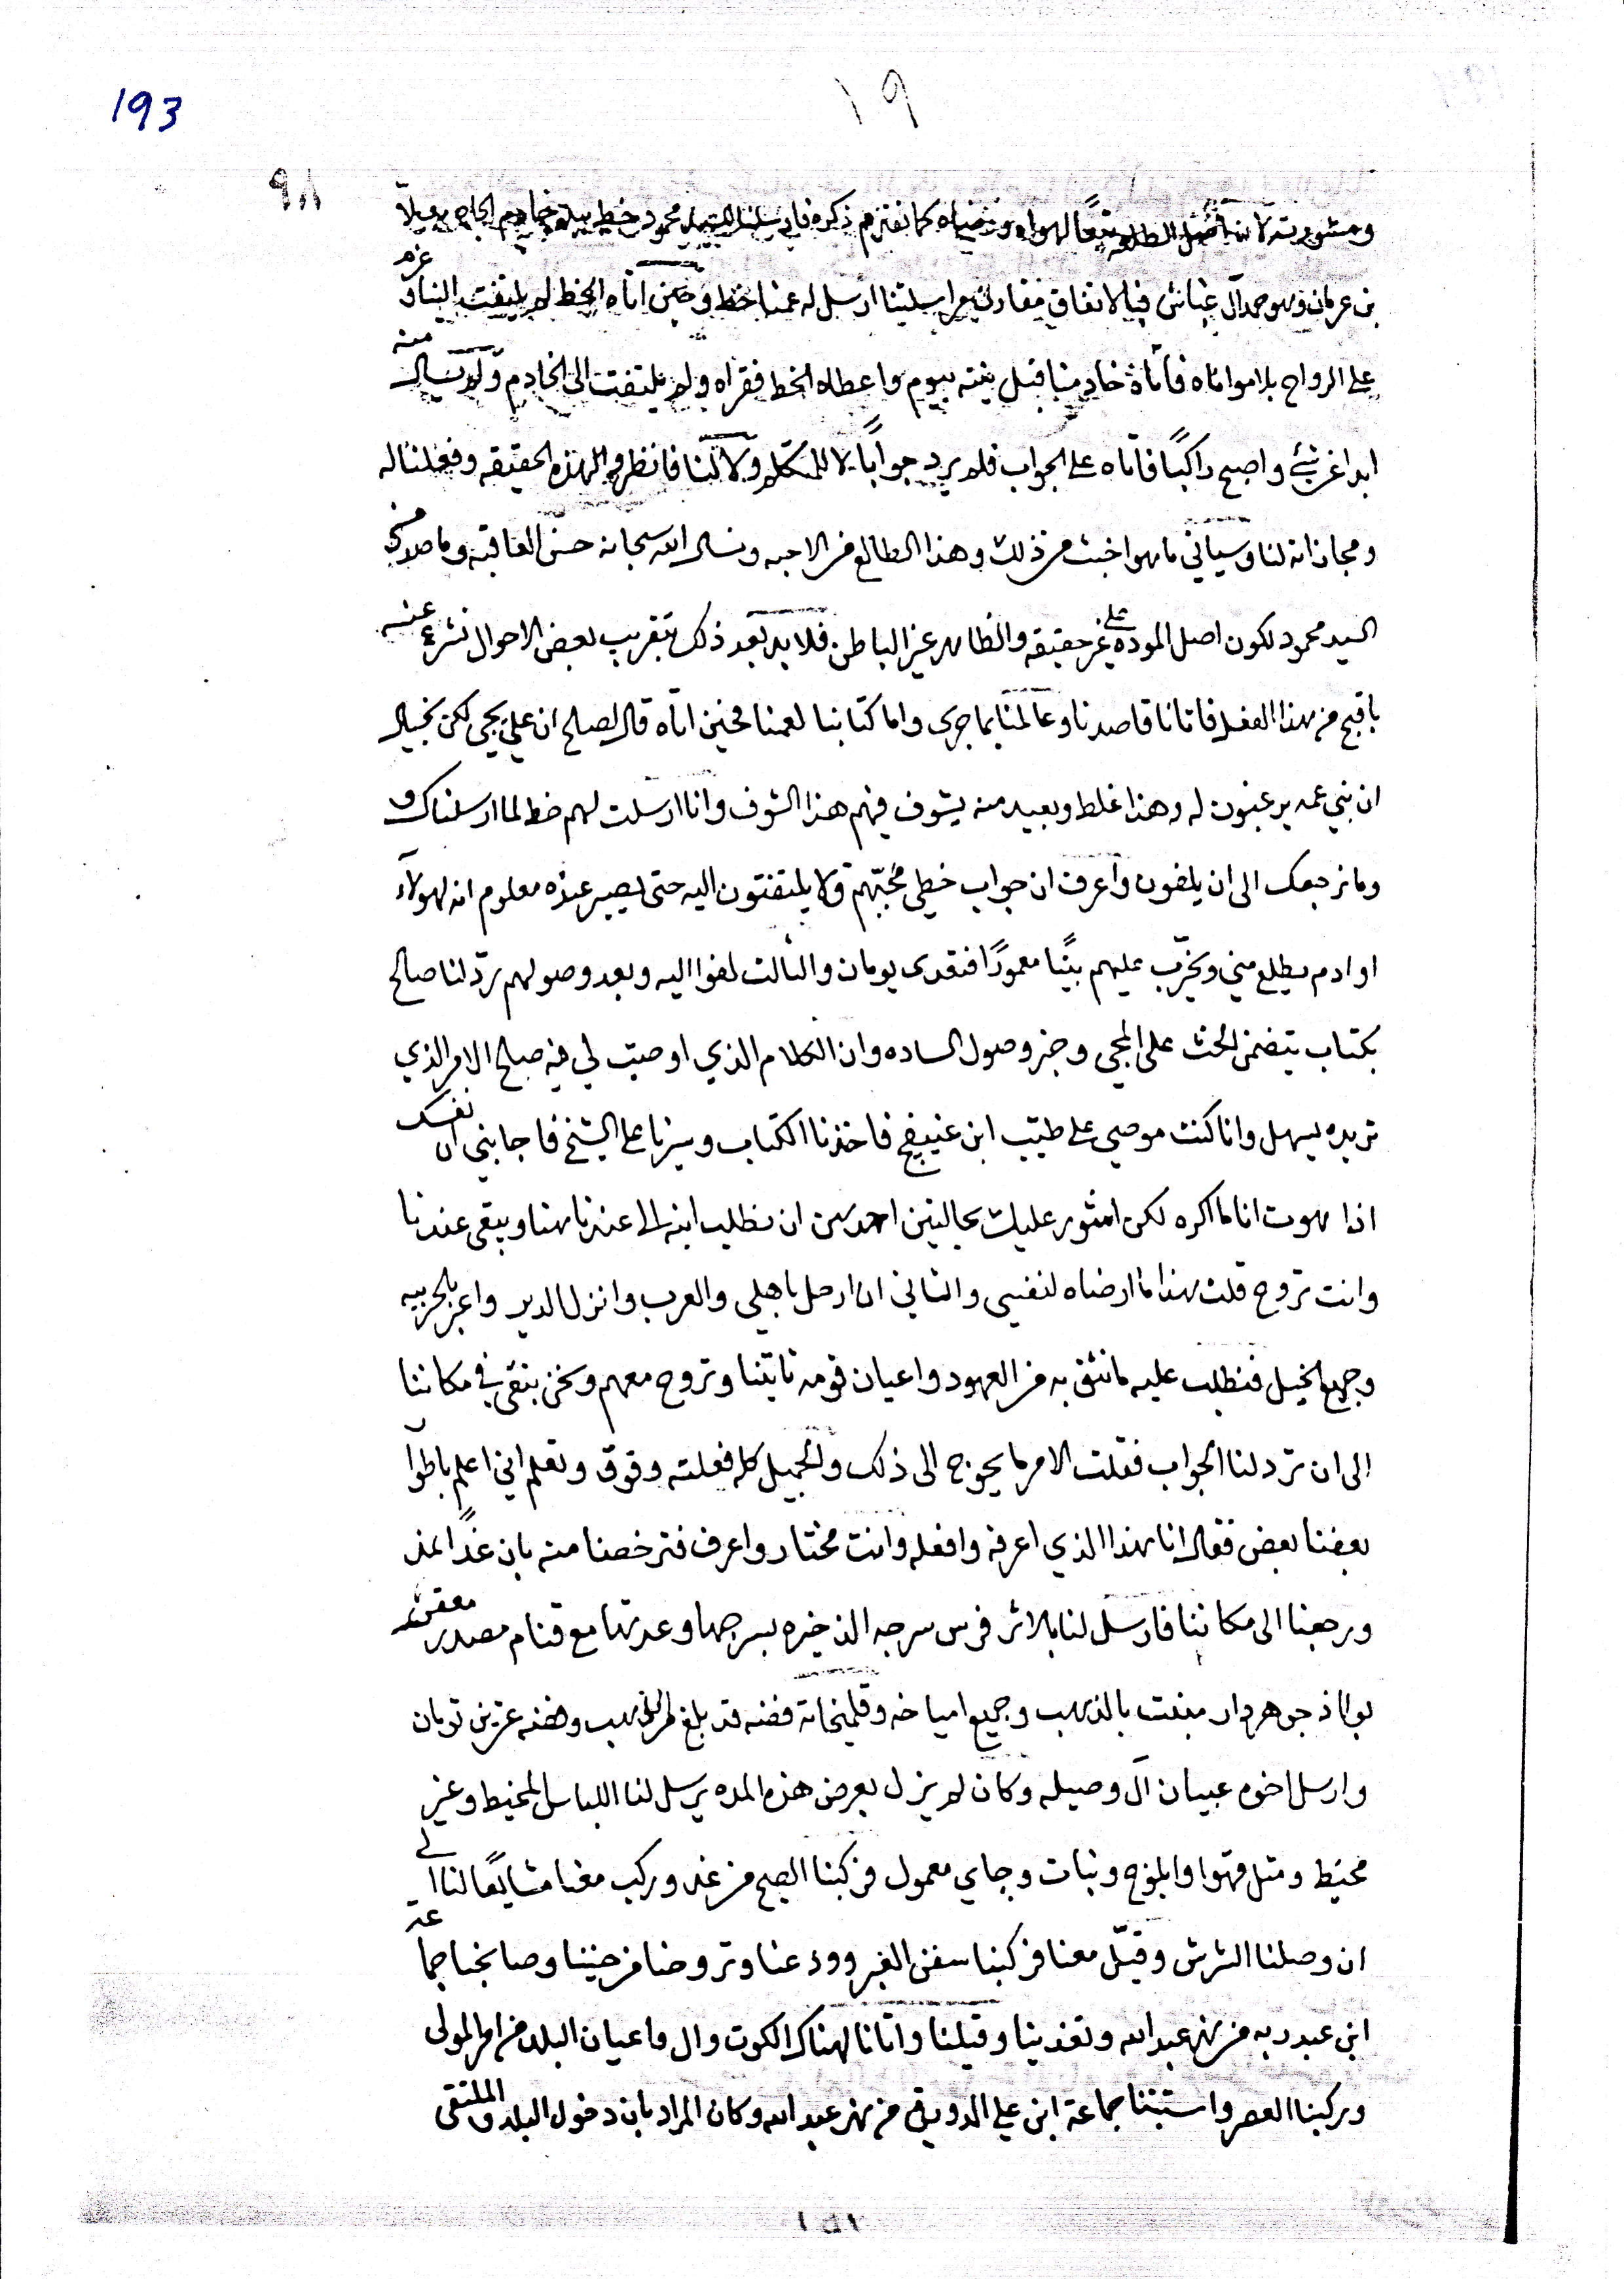 193
١٩
٩٨
ومشورته لانه اصل الطلعه تبعًا لهواه ورضاه كما نفتزم ذكره فارسلنا للسيد محمود خط بيد خادم الحاج
بن عرمان وهو حمد آل غباش فبالاتفاق مراسلتنا ارسل له عمنا خط وحين اتاه الخط لم يلتفت الينا وعزم
على الرواح بلا مواناه فاتاه خادمنا قبل بيوم واعطاه الخط فقراه ولم يلتفت الى الخادم ولم يسال منه
ابدا عن شيء واصبح راكبًا فاتاه على الجواب فلم يرد جوابًا لا للمتكلم ولا لنا فانظروا لهذه الحقيقه وفعلنا له
ومجازاته لنا وسياتي ما هو اخبث من ذلك وهذا الطالع من الاحبه ونسال الله سبحانه حسن العاقبه وما صد من
السيد محمود لكون اصل الموده على غير حقيقه والظاهر غير الباطن فلا بد بعد ذلك بتقريب بعض الاحوال نشرع عنه
باقبح من هذا الفعل فاتانا قاصدنا وعالمنا بما جرى واما كتابنا لعمنا فحين اتاه قال لصالح ان علي يجي لكن بخيال
ان بني عمه يرغبون له وهذا غلط وبعيد منه يشوف فيهم هذا الشوف وانا ارسلت لهم خط لما ارسلناك و
وما نرجعك الى ان يلفون واعرف ان جواب خطي محبتهم ولا يلتفتون اليه حتى يصير عنده معلوم انه لهولاء
اوادم يطلع مني ويخرّب عليهم بيتًا معمورًا فتعدى يومان والثالث لفوا اليه وبعد وصولهم ردّ لنا صالح
بكتاب يتضمن الحث على المجي وخبر وصول الساده وان الكلام الذي اوصيت لي فيه صلح الامر الذي
تريده يسهل وانا كنت موصي على طيب ابن غنيفج فاخذنا الكتاب وسيرنا على الشيخ فاجابني ان نفسك
اذا هوت انا ما اكره لكن امشور عليك بحالتين احدهن ان نطلب ابنه الى عندنا هنا ويبقى عندنا
وانت تروح قلت هذا ما ارضاه لنفسي والثاني ان ارحل باهلي والعرب وانزل الدير واعبر بالحربيه
وجميع الخيل فنطلب عليه ما نثق به من العهود واعيان قومه تاتينا وتروح معهم ونحن بنقى في مكاننا
الى ان ترد لنا الجواب فقلت الامر ما يحوج الى ذلك والجميل كله فعلته وفوق وتعلم اني اعلم باطوار
بعضنا بعض فقال انا هذا الذي اعرفه وافعله وانت مختار واعرف فترخصنا منه بان غدًا نمد
ورجعنا الى مكاننا فارسل لنا بالاثر فرس سرجه الذخيره بسرجها وعدتها مع قنام مصدر معقرش
بولاذ جوهردار منعت بالذهب وجميع امياخه وقلمخانة فضه قد بلغ الذهب وفضه عشرين تومان
وارسل اخوه عبيان آل وصيله وكان لم يزل بعرض هذه المده يرسل لنا اللباس المخيط وغير
مخيط ومثل قهوا وابلوج ونبات وجاي معمول فركبنا الصبح من غد وركب معنا مشايعًا لنا الى
ان وصلنا الشرش وقيّل معنا فركبنا سفن الغبر وودعنا وتروحنا من حيننا وصابحنا جماعة
ابن عبد ربه من نهر عبدالله وتغدينا وقيلنا واتانا لهناك الكوت وال واعيان البلد من امر المولى
وركبنا العصر واستبتنا جماعة ابن علي الدويقي من نهر عبدالله وكان المراد بان دخول البلد والملتقى
١٥١